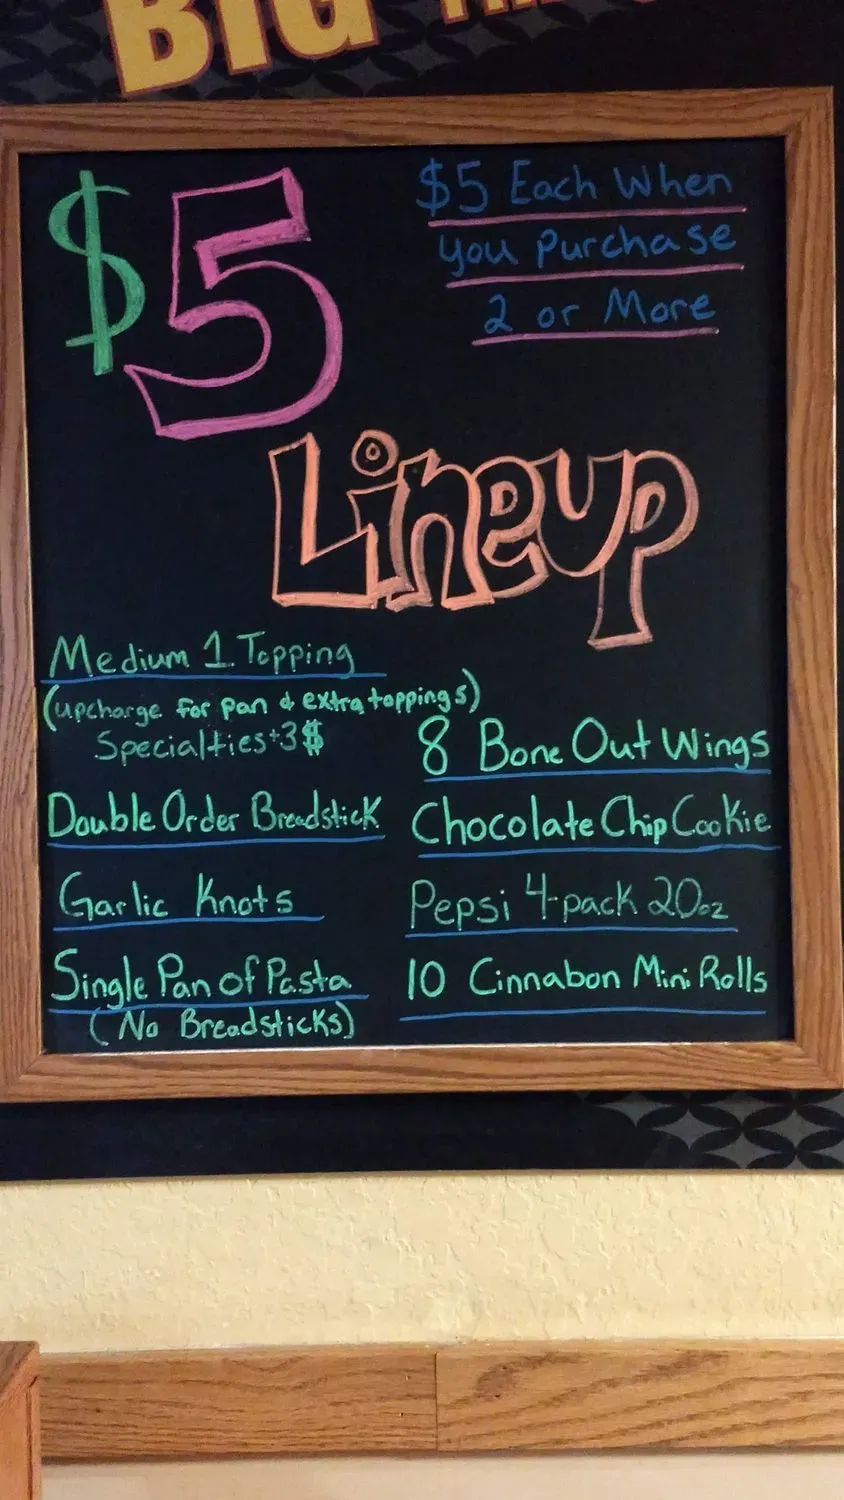 BIG
$5
$5 Each When
you purchase
2 or More
Lineup
Medium 1 Topping
(upcharge for pan & extra toppings)
Specialties+3$
Double Order Breadstick
Garlic Knots
Single Pan of Pasta
(No Breadsticks)
8 Bone Out Wings
Chocolate Chip Cookie
Pepsi 4-pack 20oz
10 Cinnabon Mini Rolls